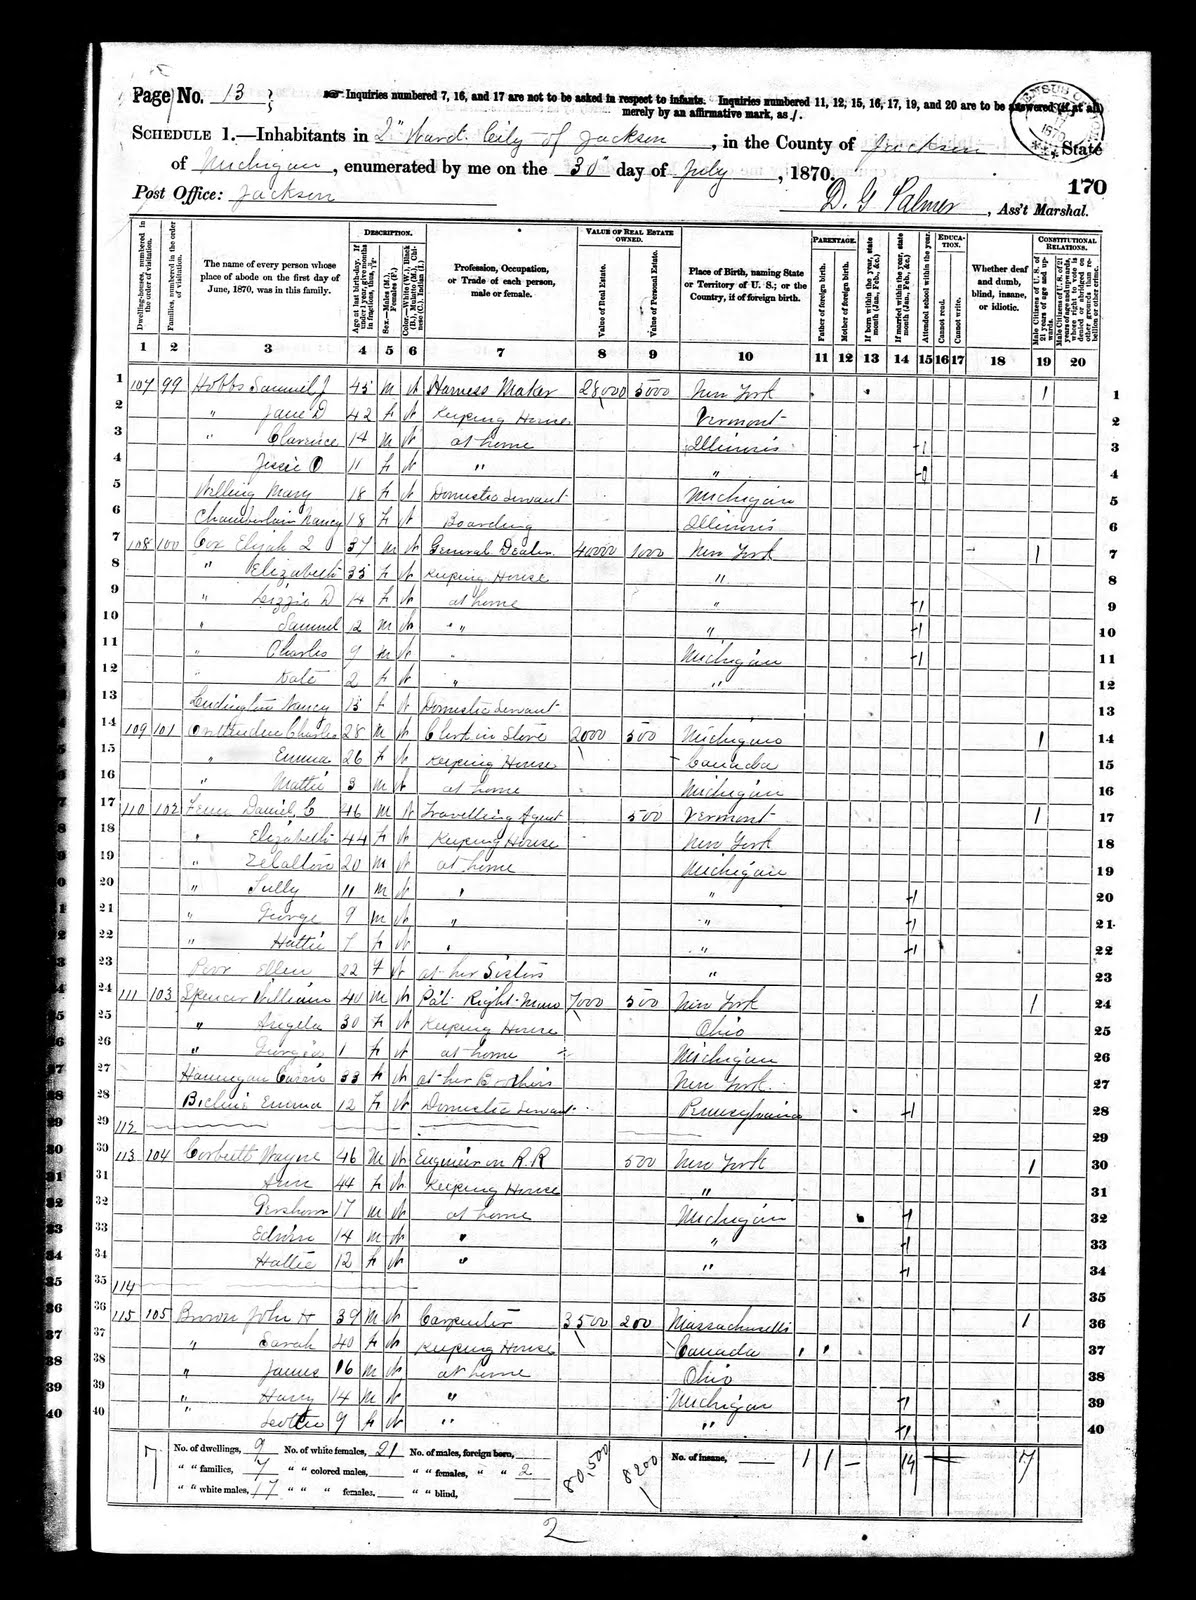 Page No. 13
Inquiries numbered 7, 16, and 17 are not to be asked in respect to infants. Inquiries numbered 11, 12, 15, 16, 17, 19, and 20 are to be answered (if at all)
merely by an affirmative mark, as /.
SCHEDULE 1.—Inhabitants in 2" Ward. City of Jackson, in the County of Jackson, State
of Michigan, enumerated by me on the 30" day of July, 1870.
170
Post Office: Jackson
D. G Palmer, Ass't Marshal.
Dwelling-houses, numbered in the order of visitation.
Families, numbered in the order of visitation.
The name of every person whose place of abode on the first day of June, 1870, was in this family.
DESCRIPTION.
Age at last birth-day. If under 1 year, give months in fractions, thus,
Sex.—Males (M.), Females (F.)
Color.—White (W.), Black (B.), Mulatto (M.), Chinese (C.), Indian (I.)
Profession, Occupation, or Trade of each person, male or female.
VALUE OF REAL ESTATE OWNED.
Value of Real Estate.
Value of Personal Estate.
Place of Birth, naming State or Territory of U. S.; or the Country, if of foreign birth.
PARENTAGE.
Father of foreign birth.
Mother of foreign birth.
If born within the year, state month (Jan., Feb., &c.)
If married within the year, state month (Jan., Feb., &c.)
Attended school within the year.
EDUCATION.
Cannot read.
Cannot write.
Whether deaf and dumb, blind, insane, or idiotic.
CONSTITUTIONAL RELATIONS.
Male Citizens of U. S. of 21 years of age and upwards.
Male Citizens of U. S. of 21 years of age and upwards, whose right to vote is denied or abridged on other grounds than rebellion or other crime.
1 2 3 4 5 6 7 8 9 10 11 12 13 14 15 16 17 18 19 20
1 107 99 Hobbs Samuel J 45 M W Harness Maker 28,000 5000 New York 1 1
2 " Jane D 42 F W Keeping House Vermont 2
3 " Clarence 14 M W at home Illinois 1 3
4 Jessie O 11 F W " " 1 4
5 Welling Mary 18 F W Domestic servant Michigan 5
6 Chamberlain Nancy 18 F W Boarding Illinois 6
7 108 100 Cox Elijah 37 M W General Dealer 40000 1000 New York 1 7
8 " Elizabeth 35 F W Keeping House " 8
9 " Lizzie D 14 F W at home " 1 9
10 " Samuel 12 M W " " " 1 10
11 " Charles 9 M W " Michigan 1 11
12 " Kate 2 F W " " 12
13 Nancy 15 F W Domestic servant 13
14 109 101 Charles 28 M W Clerk in Store 2000 500 Michigan 1 14
15 " Emma 26 F W Keeping House Canada 15
16 " Mattie 3 M W at home Michigan 16
17 110 102 Fenn Daniel C 46 M W Travelling Agent 500 Vermont 1 17
18 " Elizabeth 44 F W Keeping House New York 18
19 " 20 M W at home Michigan 19
20 " 11 M W " " 1 20
21 " George 9 M W " " 1 21
22 " Hattie 7 F W " " 1 22
23 Poor Ellen 22 F W at her Sisters " 23
24 111 103 Spencer William 40 M W Pat. Right Mans 7000 500 New York 1 24
25 " Angela 30 F W Keeping House Ohio 25
26 " 1 F W at home Michigan 26
27 Hannigan Carrie 33 F W at her Brothers New York 27
28 Emma 12 F W Domestic Servant Pennsylvania 1 28
29 112 29
30 113 104 Corbett Wayne 46 M W Engineer on R.R 500 New York 1 30
31 Ann 44 F W Keeping House " 31
32 Gershom 17 M W at home Michigan 1 32
33 Edwin 14 M W " " 1 33
34 Hattie 12 F W " " 1 34
35 114 35
36 115 105 Brown John H 39 M W Carpenter 3500 200 Massachusetts 1 36
37 " Sarah 40 F W Keeping House Canada 1 1 37
38 " James 16 M W at home Ohio 38
39 " Harry 14 M W " Michigan 1 39
40 " Lottie 9 F W " " 1 40
7 No. of dwellings, 9 No. of white females, 21 No. of males, foreign born, 80,500 8200 No. of insane, 1 1 — 14 7
" " families, 7 " " colored males, " " females, " " 2
" " white males, 17 " " " females, " " blind,
2